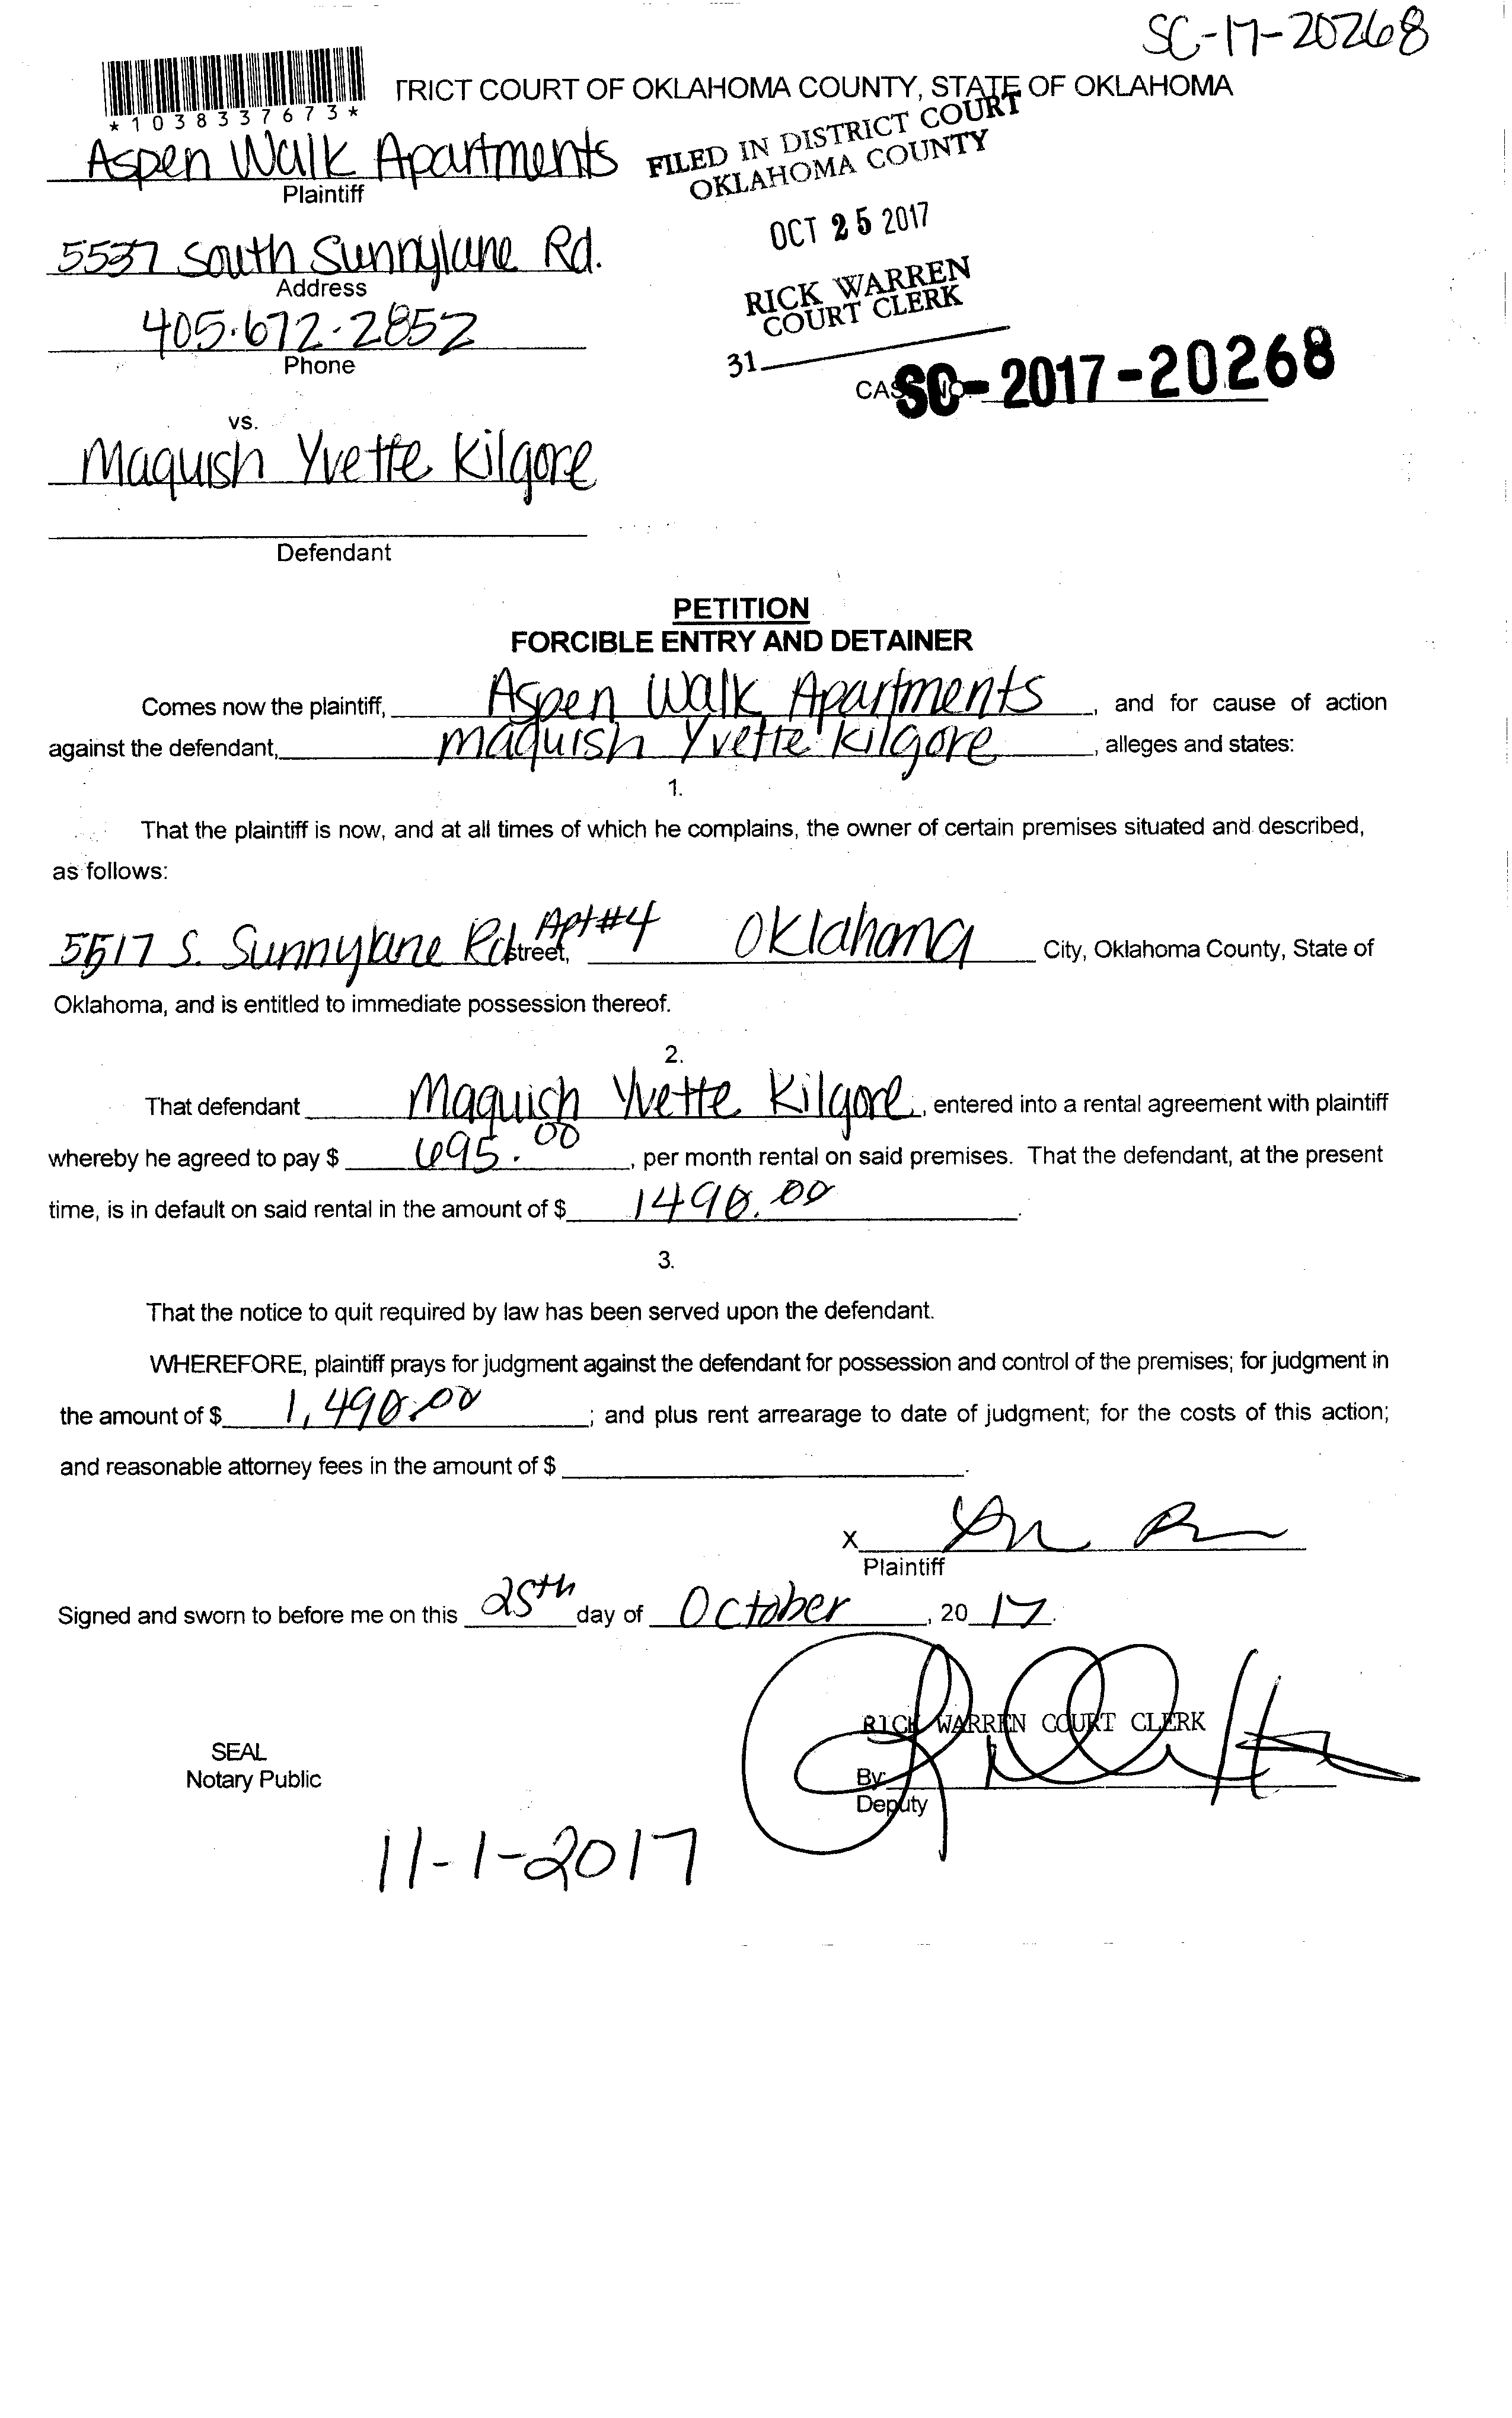 SC-17-20268
*1038337673*
TRICT COURT OF OKLAHOMA COUNTY, STATE OF OKLAHOMA
Aspen Walk Apartments
Plaintiff
FILED IN DISTRICT COURT
OKLAHOMA COUNTY
OCT 25 2017
RICK WARREN
COURT CLERK
31
5537 South Sunnylane Rd.
Address
405.672.2852
Phone
SC-2017-20268
vs.
Maquish Yvette Kilgore
Defendant
PETITION
FORCIBLE ENTRY AND DETAINER
Comes now the plaintiff, Aspen Walk Apartments, and for cause of action
against the defendant, Maquish Yvette Kilgore, alleges and states:
1.
That the plaintiff is now, and at all times of which he complains, the owner of certain premises situated and described,
as follows:
5517 S. Sunnylane Rd street, Apt #4 Oklahoma City, Oklahoma County, State of
Oklahoma, and is entitled to immediate possession thereof.
2.
That defendant Maquish Yvette Kilgore, entered into a rental agreement with plaintiff
whereby he agreed to pay $ 695.00, per month rental on said premises. That the defendant, at the present
time, is in default on said rental in the amount of $ 1490.00.
3.
That the notice to quit required by law has been served upon the defendant.
WHEREFORE, plaintiff prays for judgment against the defendant for possession and control of the premises; for judgment in
the amount of $ 1,490.00; and plus rent arrearage to date of judgment; for the costs of this action;
and reasonable attorney fees in the amount of $ .
X
Plaintiff
Signed and sworn to before me on this 25th day of October, 20 17.
RICK WARREN COURT CLERK
SEAL
Notary Public
By:
Deputy
11-1-2017